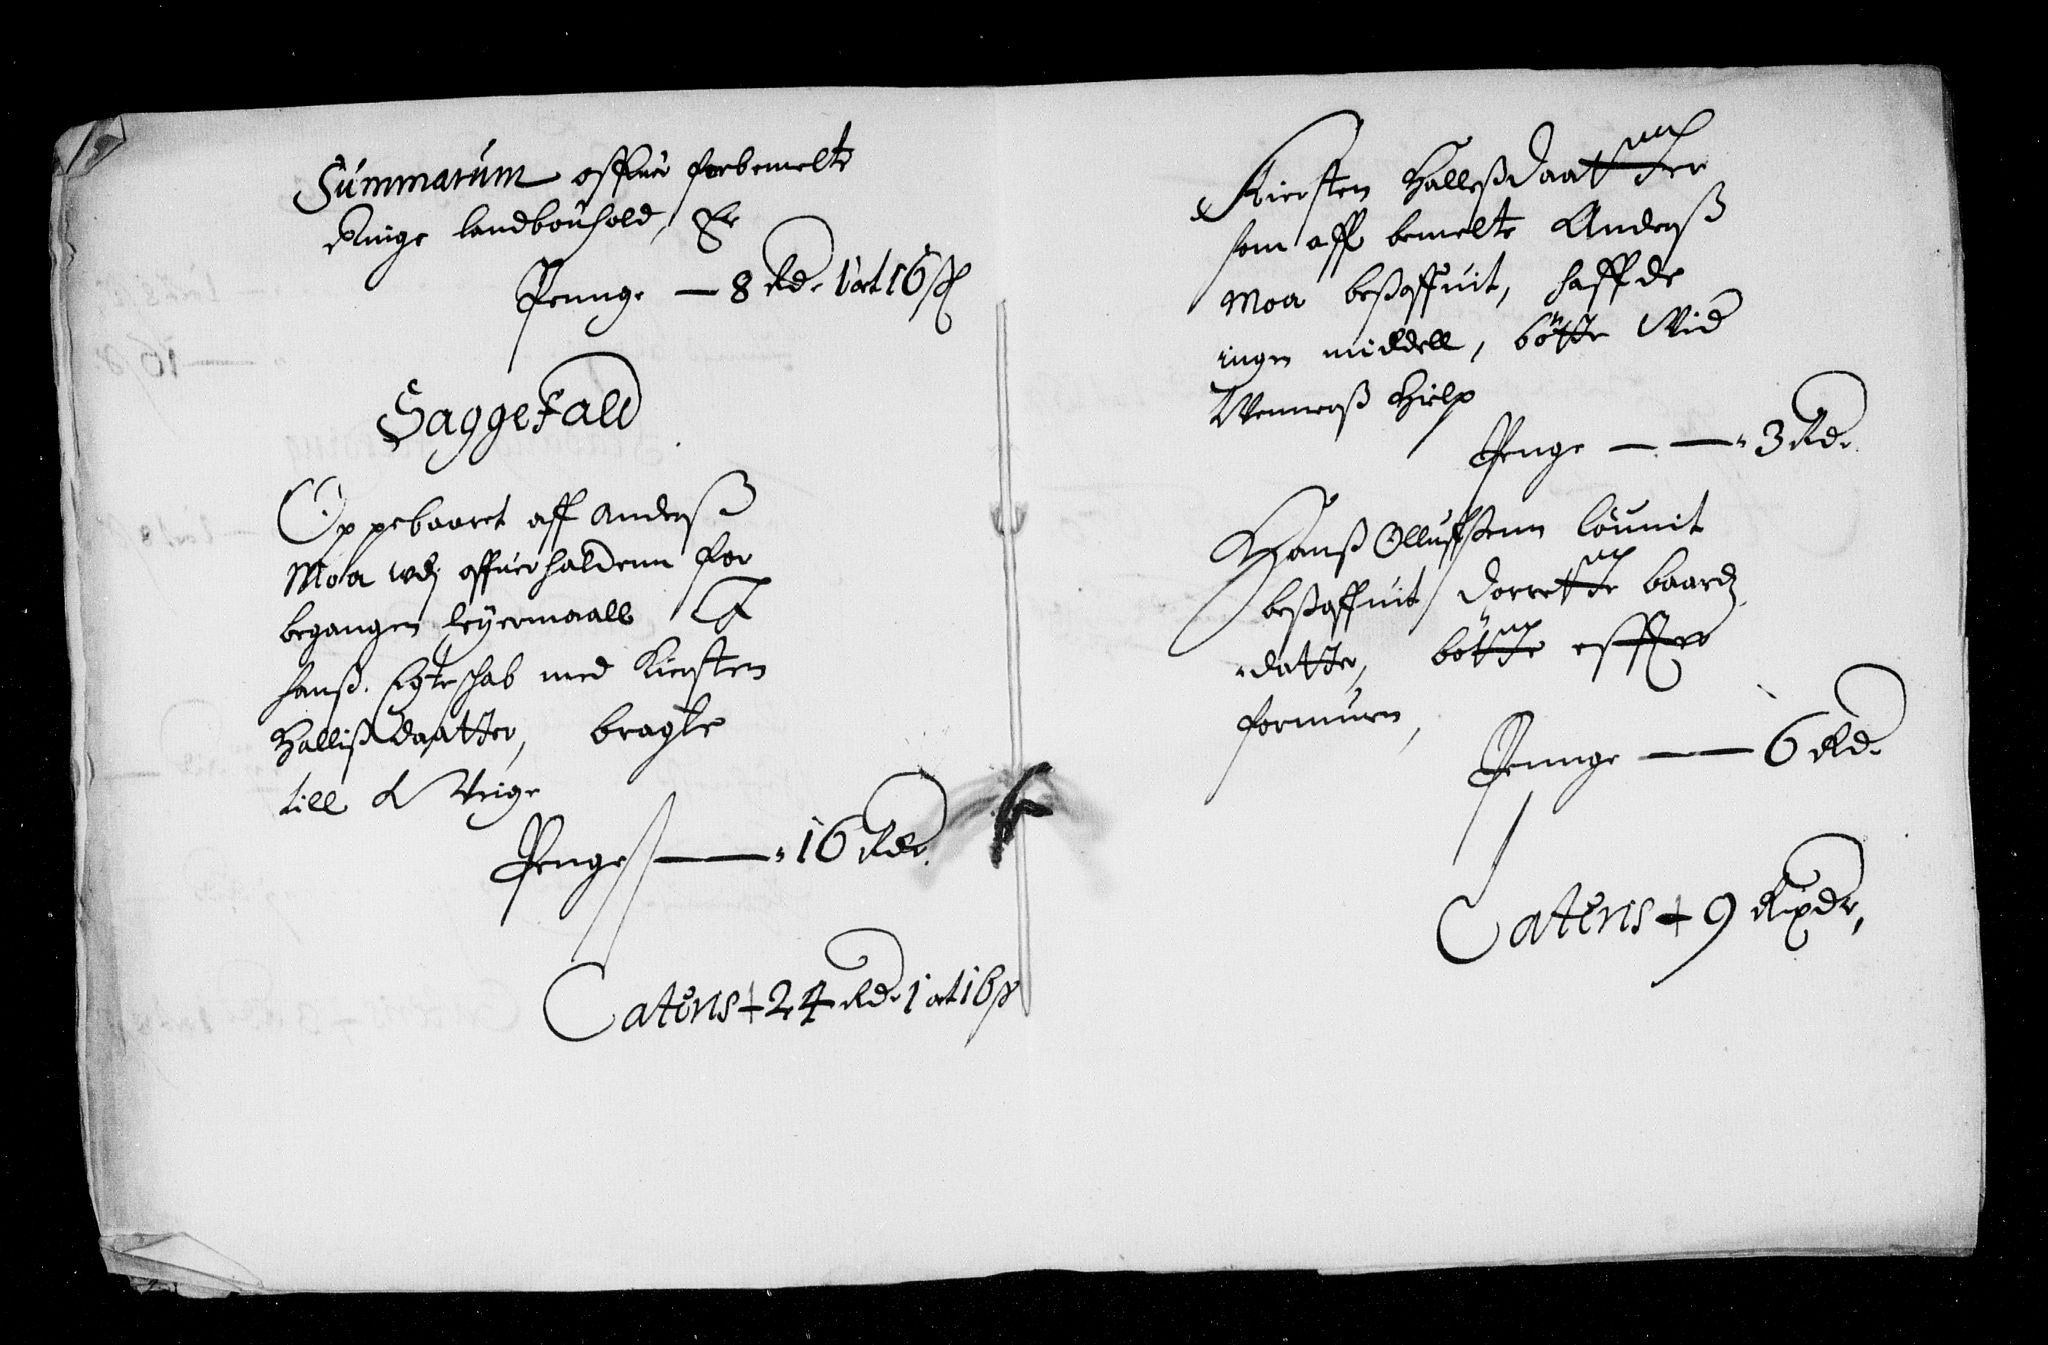 Summarum offuer forbemelte
Ringe landbouhold, Er
Penge — 8 Rd. 1 ort 16 ß
Saggefald
Oppebaaret aff Anderß
Moa udj offuerhaldenn for
begangen leyermaall
hanß Egteschab med Kiersten
Hallißdaatter, bragte
till
Penge — 16 Rdr.
Lateris + 24 Rd. 1 ort 16 ß
Kiersten Halleßdaatter
som aff bemelte Anderß
Moa besoffuit, haffde
ingen middell, bötte Wid
Wenners Hielp
Penge — — 3 Rd.
Hanß Olluffsenn
besoffuit Dorrette baardz
datter, bötte effter
formuen,
Penge — 6 Rd.
Lateris + 9 Rixdr,